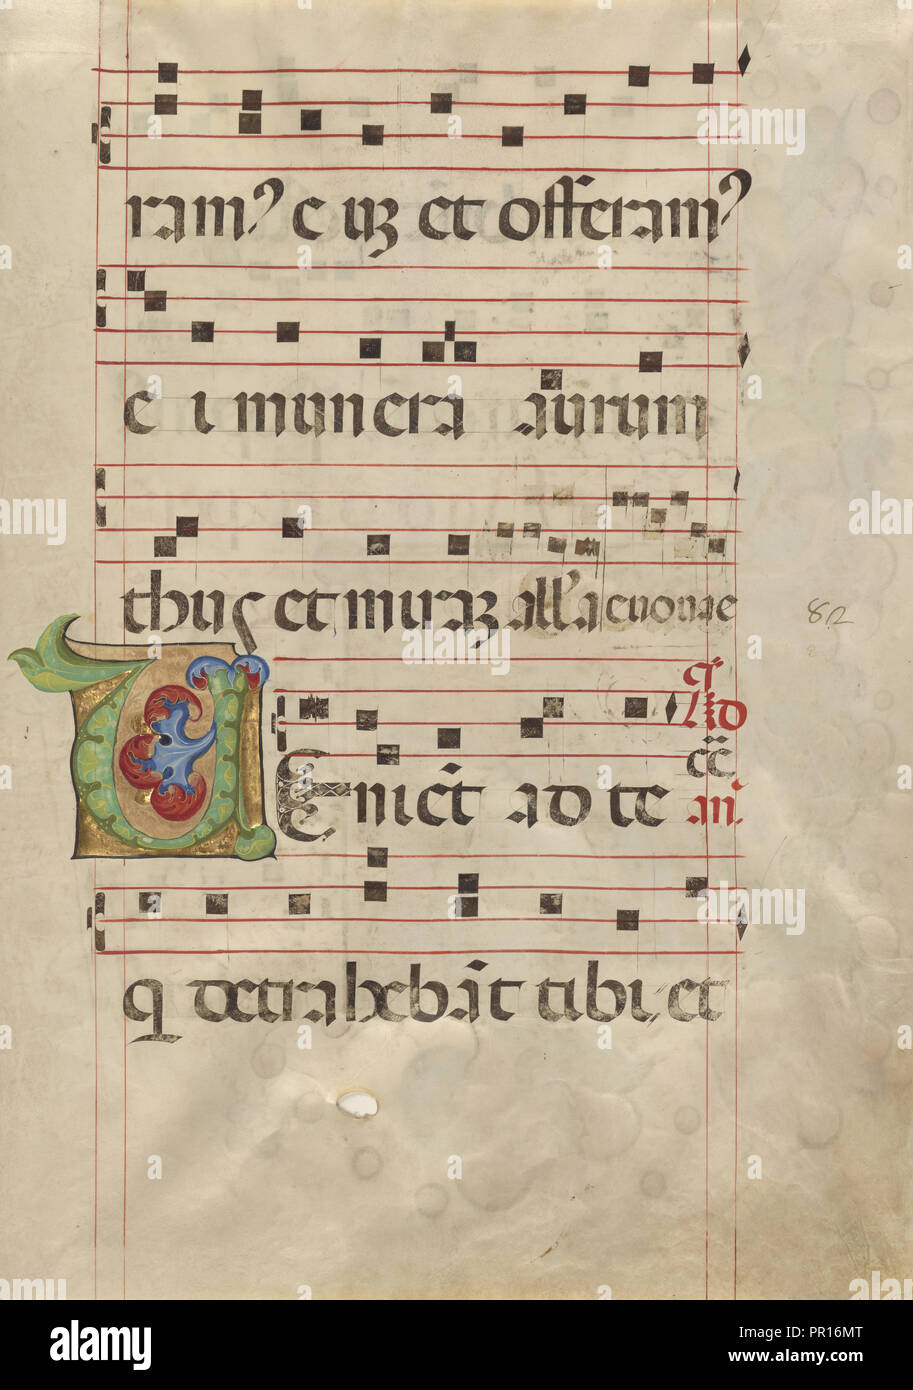 ramꝰ e uꝫ et offeramꝰ
e i munera aurum
thus et miraꝫ all'a euouae
82
Ad
Veniēt ad te
cc
an̄.
q detrahebāt tibi, et
alamy
Image ID: PR16MT
www.alamy.com